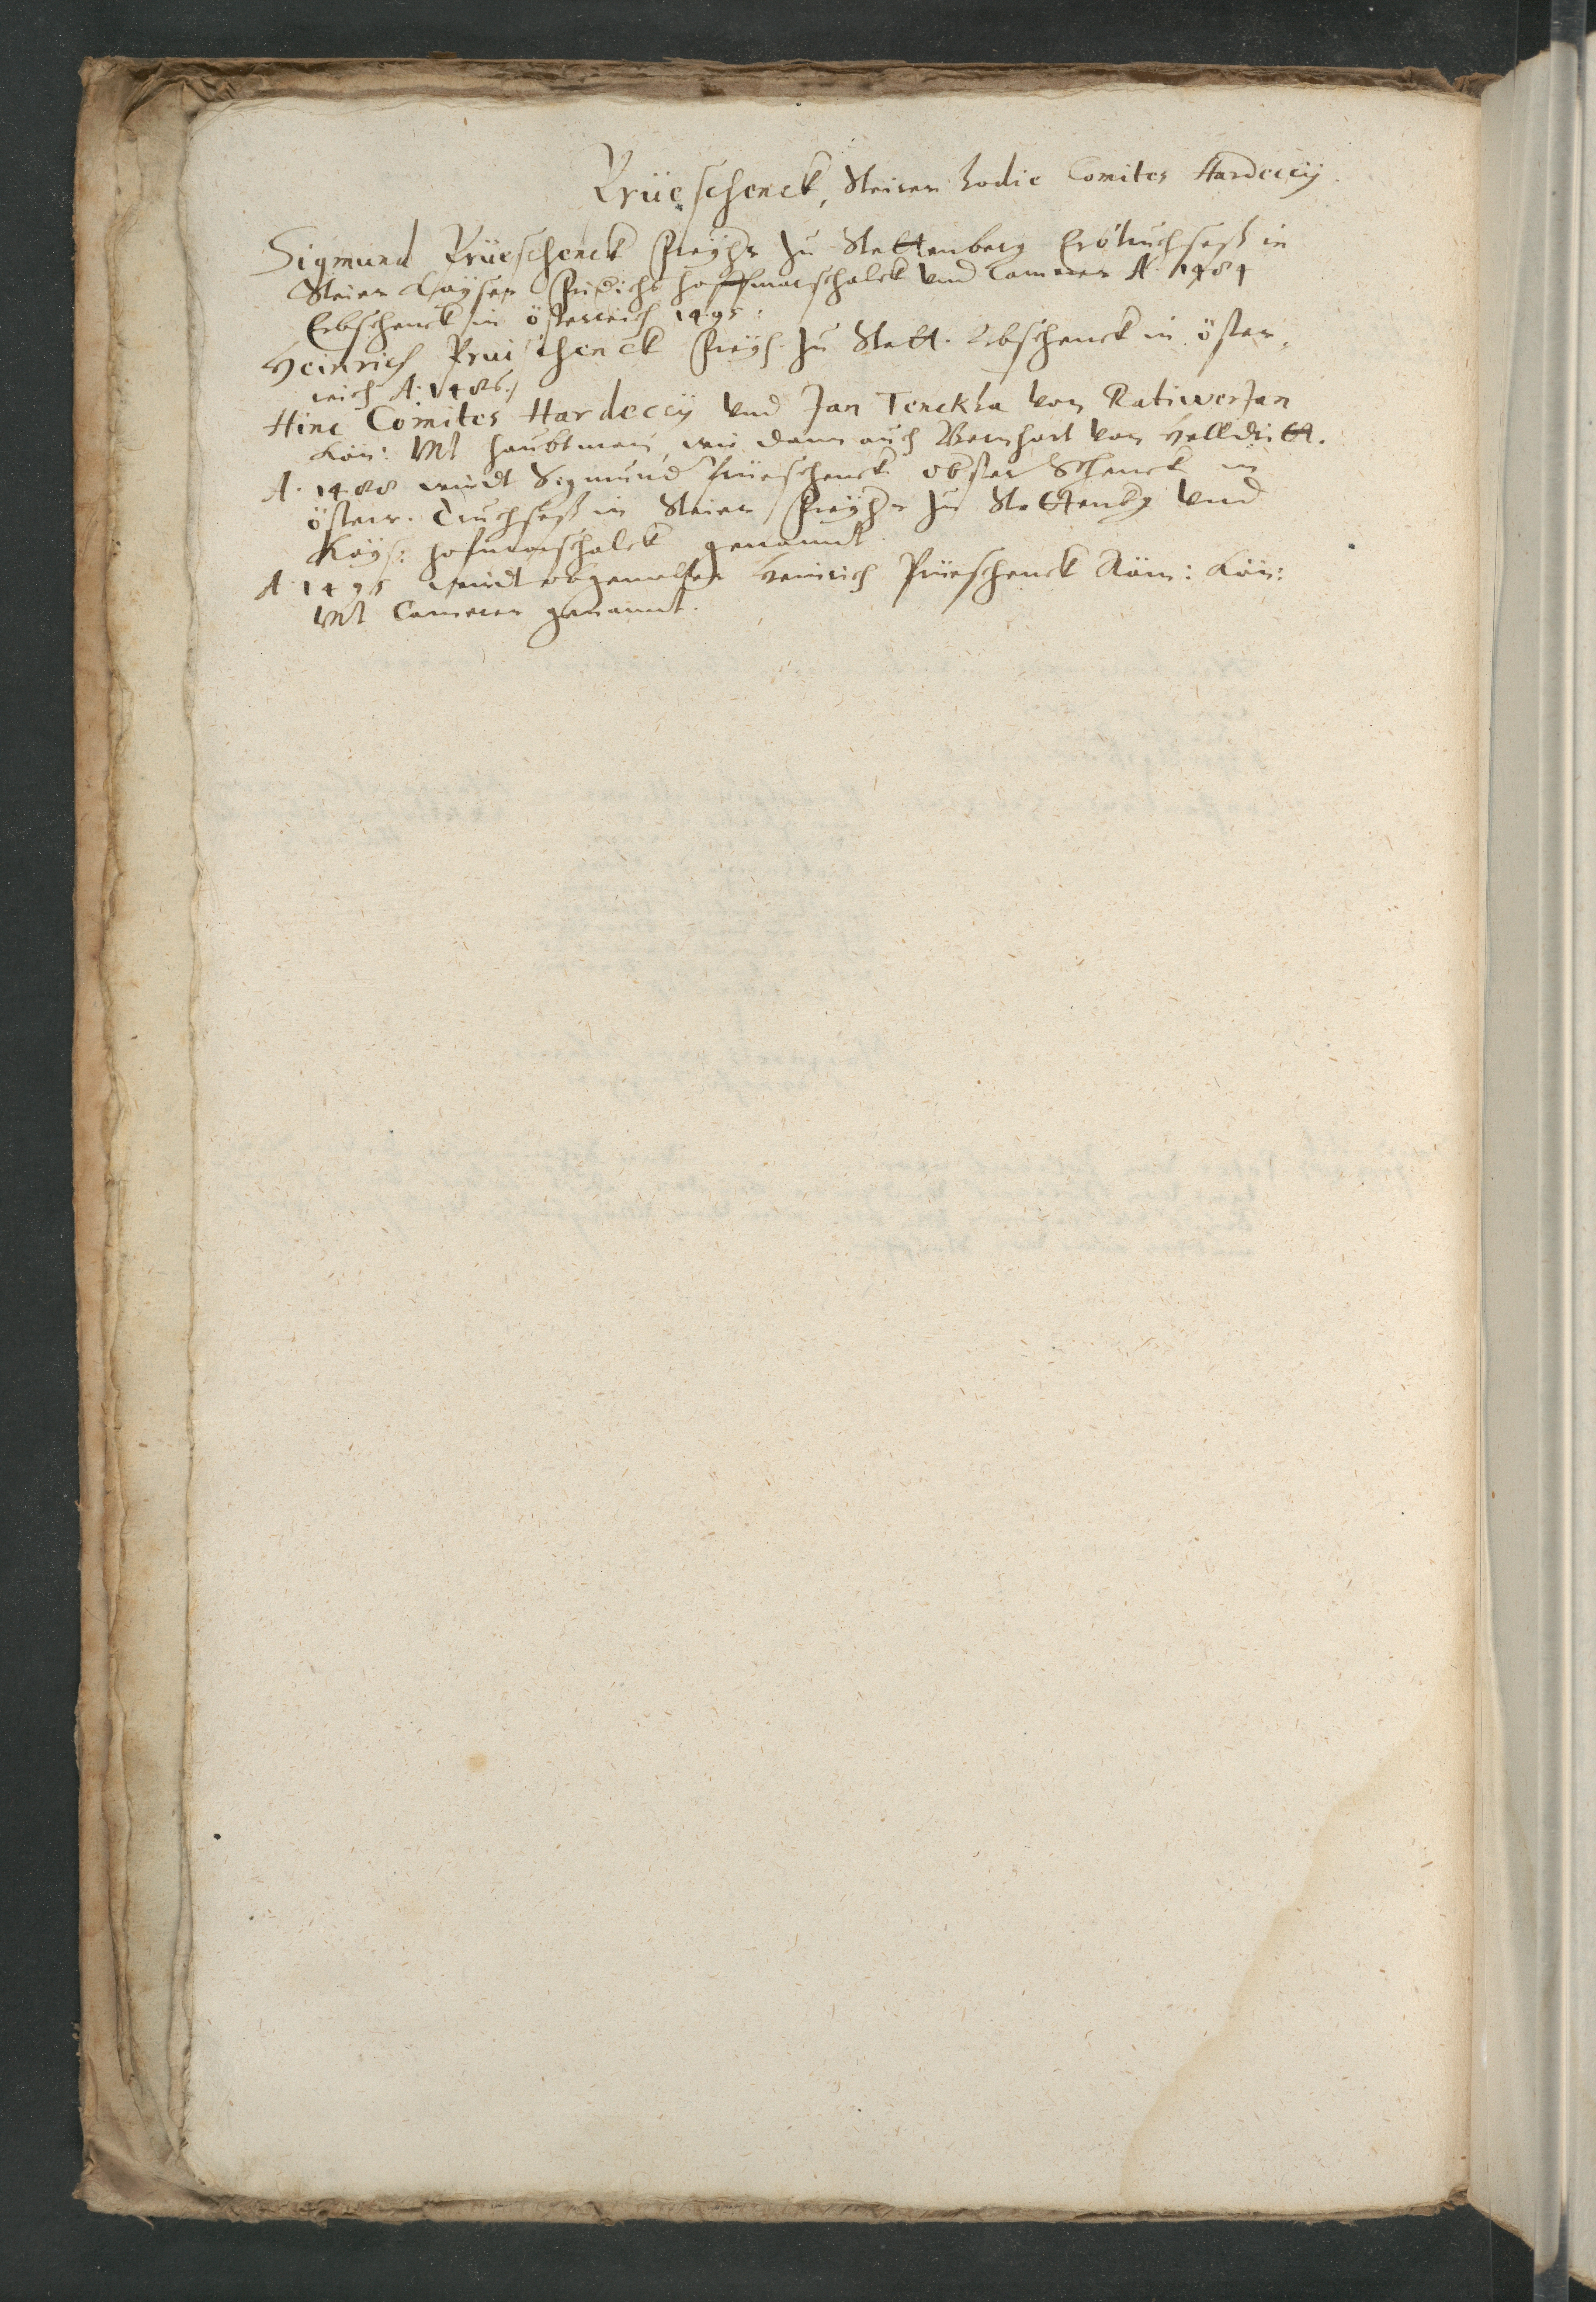 Prüeschenck, Steirer hodie Comites Hardeccij.
Sigmund Prüeschenck Freyhr zu Stettenberg Erbtruchseß in
Steier Kayser Fridichs hoffmarschalck und Camerer A. 1484
Erbschenck in österreich 1495:
Heinrich Prüschenck Freyh. zu Stett. Erbschenck in öster-
reich A. 1486.
Hinc Comites Hardeccij und Jan Tenckha von Ratiwerzan
Kön: Mt haubtman, wie dann auch Bernhart von
A. 1488 wirdt Sigmund Prüeschenck obster Schenck in
österr. Truchseß in Steier Freyhr zu Stettenbg und
Kays: hofmarschalck genannt.
A. 1495 wirdt obgemelter Heinrich Prüeschenck Röm: Kön:
Mt Camerer genannt.